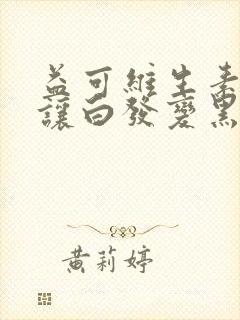 益可維生素
讓白發變黑
黃莉婷